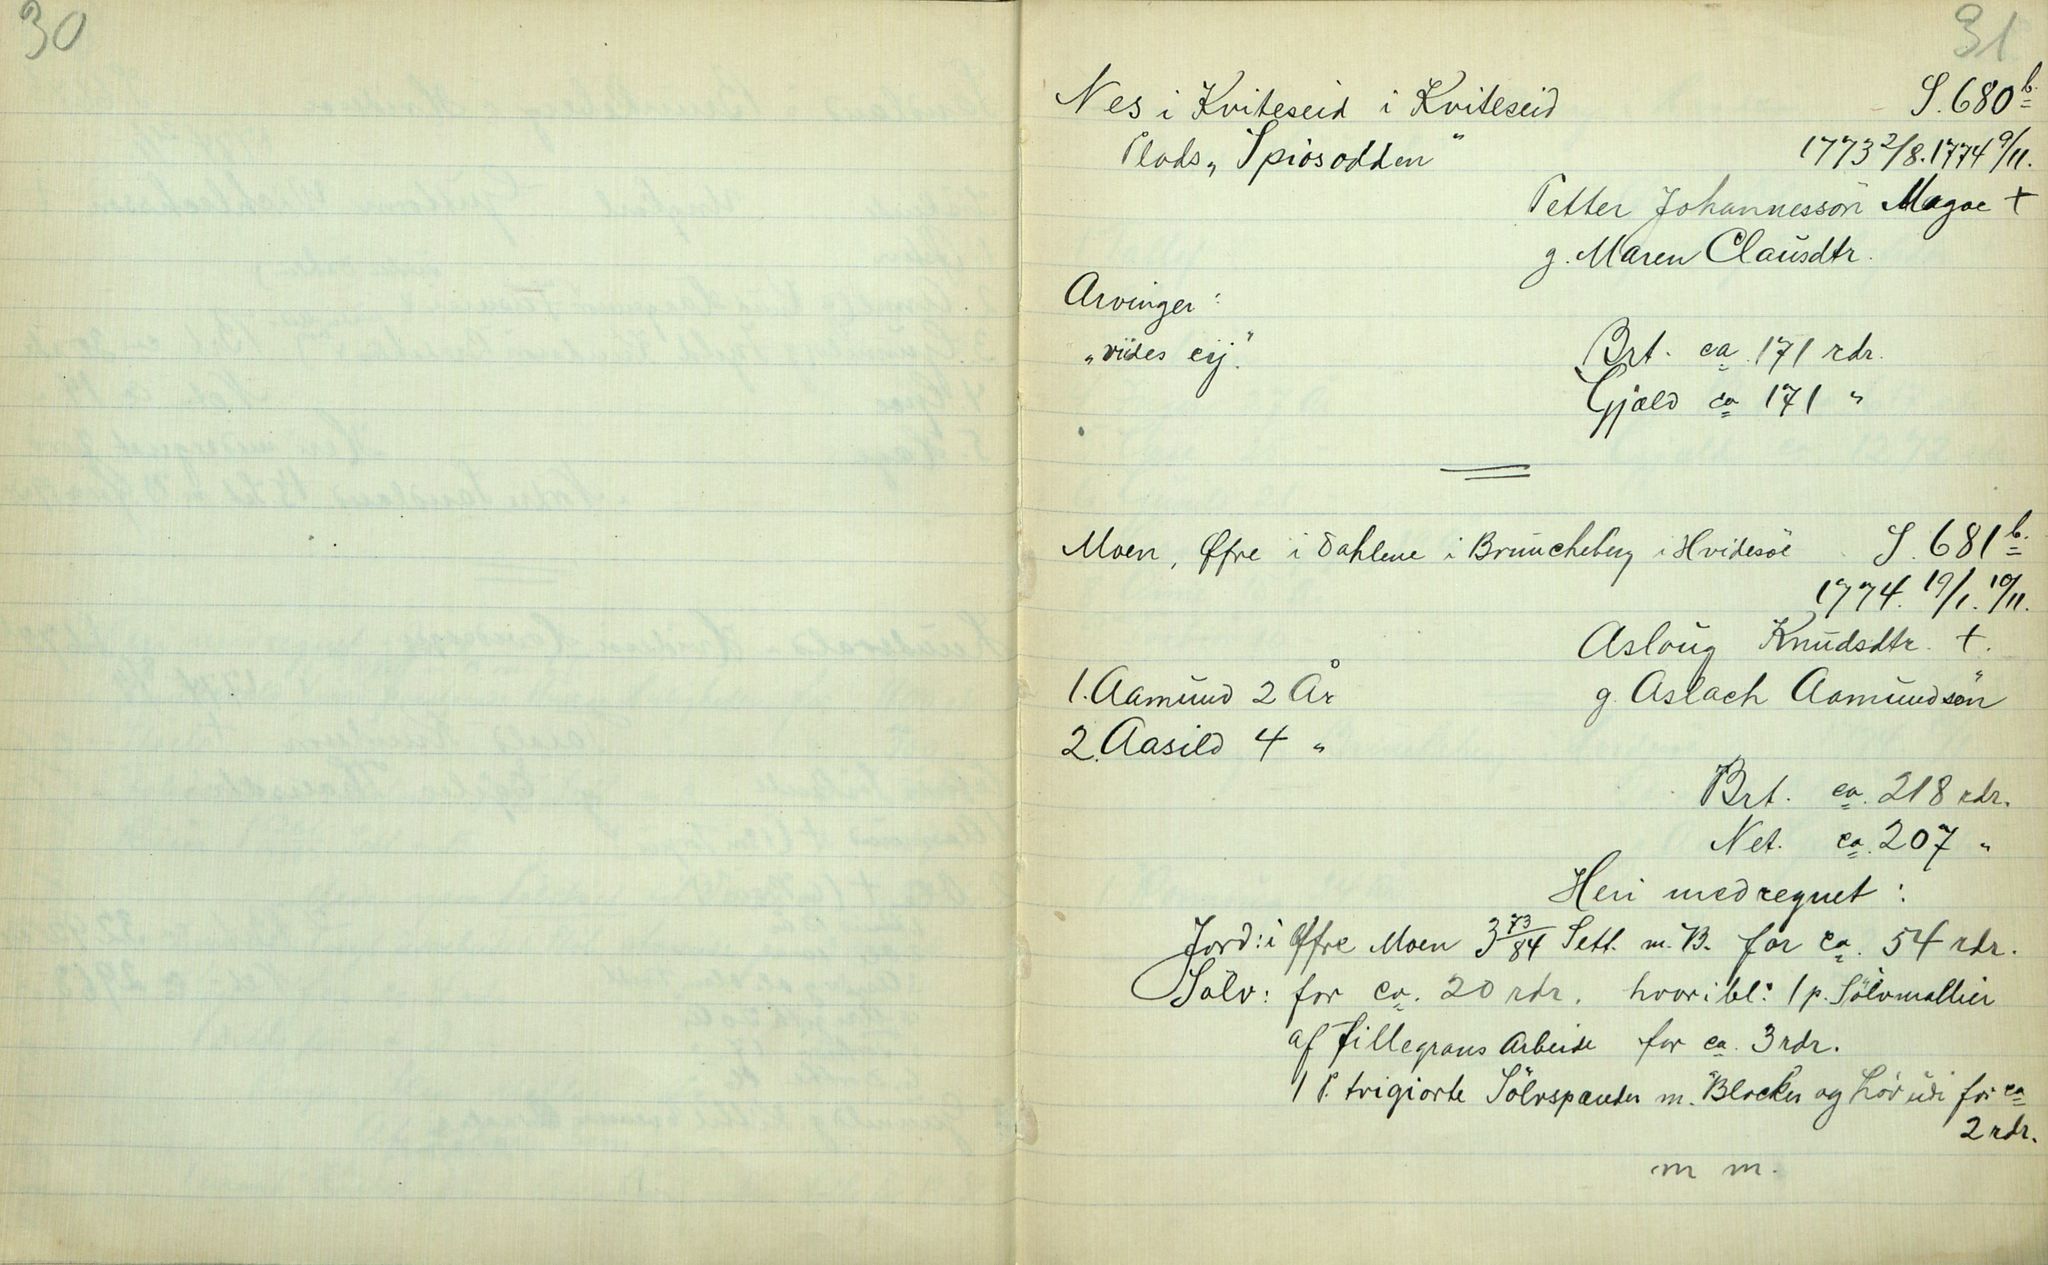 30
31
Nes i Kviteseid i Kviteseid S. 680 b.
Plads „Spiosodden" 1773 2/8. 1774 9/11.
Petter Johannessön Magae +
g. Maren Clausdtr.
Arvinger:
„viides eij." Brt. ca. 171 rdr.
Gjæld ca 171 "
Moen, Øfre i Dahlene i Brunckeberg i Hvidesöe S. 681 b.
1774. 19/1. 10/11.
Asloug Knudsdtr. +.
1. Aamund 2 År g. Aslach Aamundsön
2. Aasild 4 "
Brt. ca. 218 rdr.
Net. ca. 207 "
Heri medregnet:
Jord: i Øfre Moen 3 73/84 Sett. m. B. for ca. 54 rdr.
Sölv: for ca. 20 rdr. hvoribl: 1 p. Sölvmallier
af fillegrans Arbeide for ca. 3 rdr.
1 P. trigiorte Sölvspænder m. Blocker og Löv udi for ca
2 rdr.
m m.